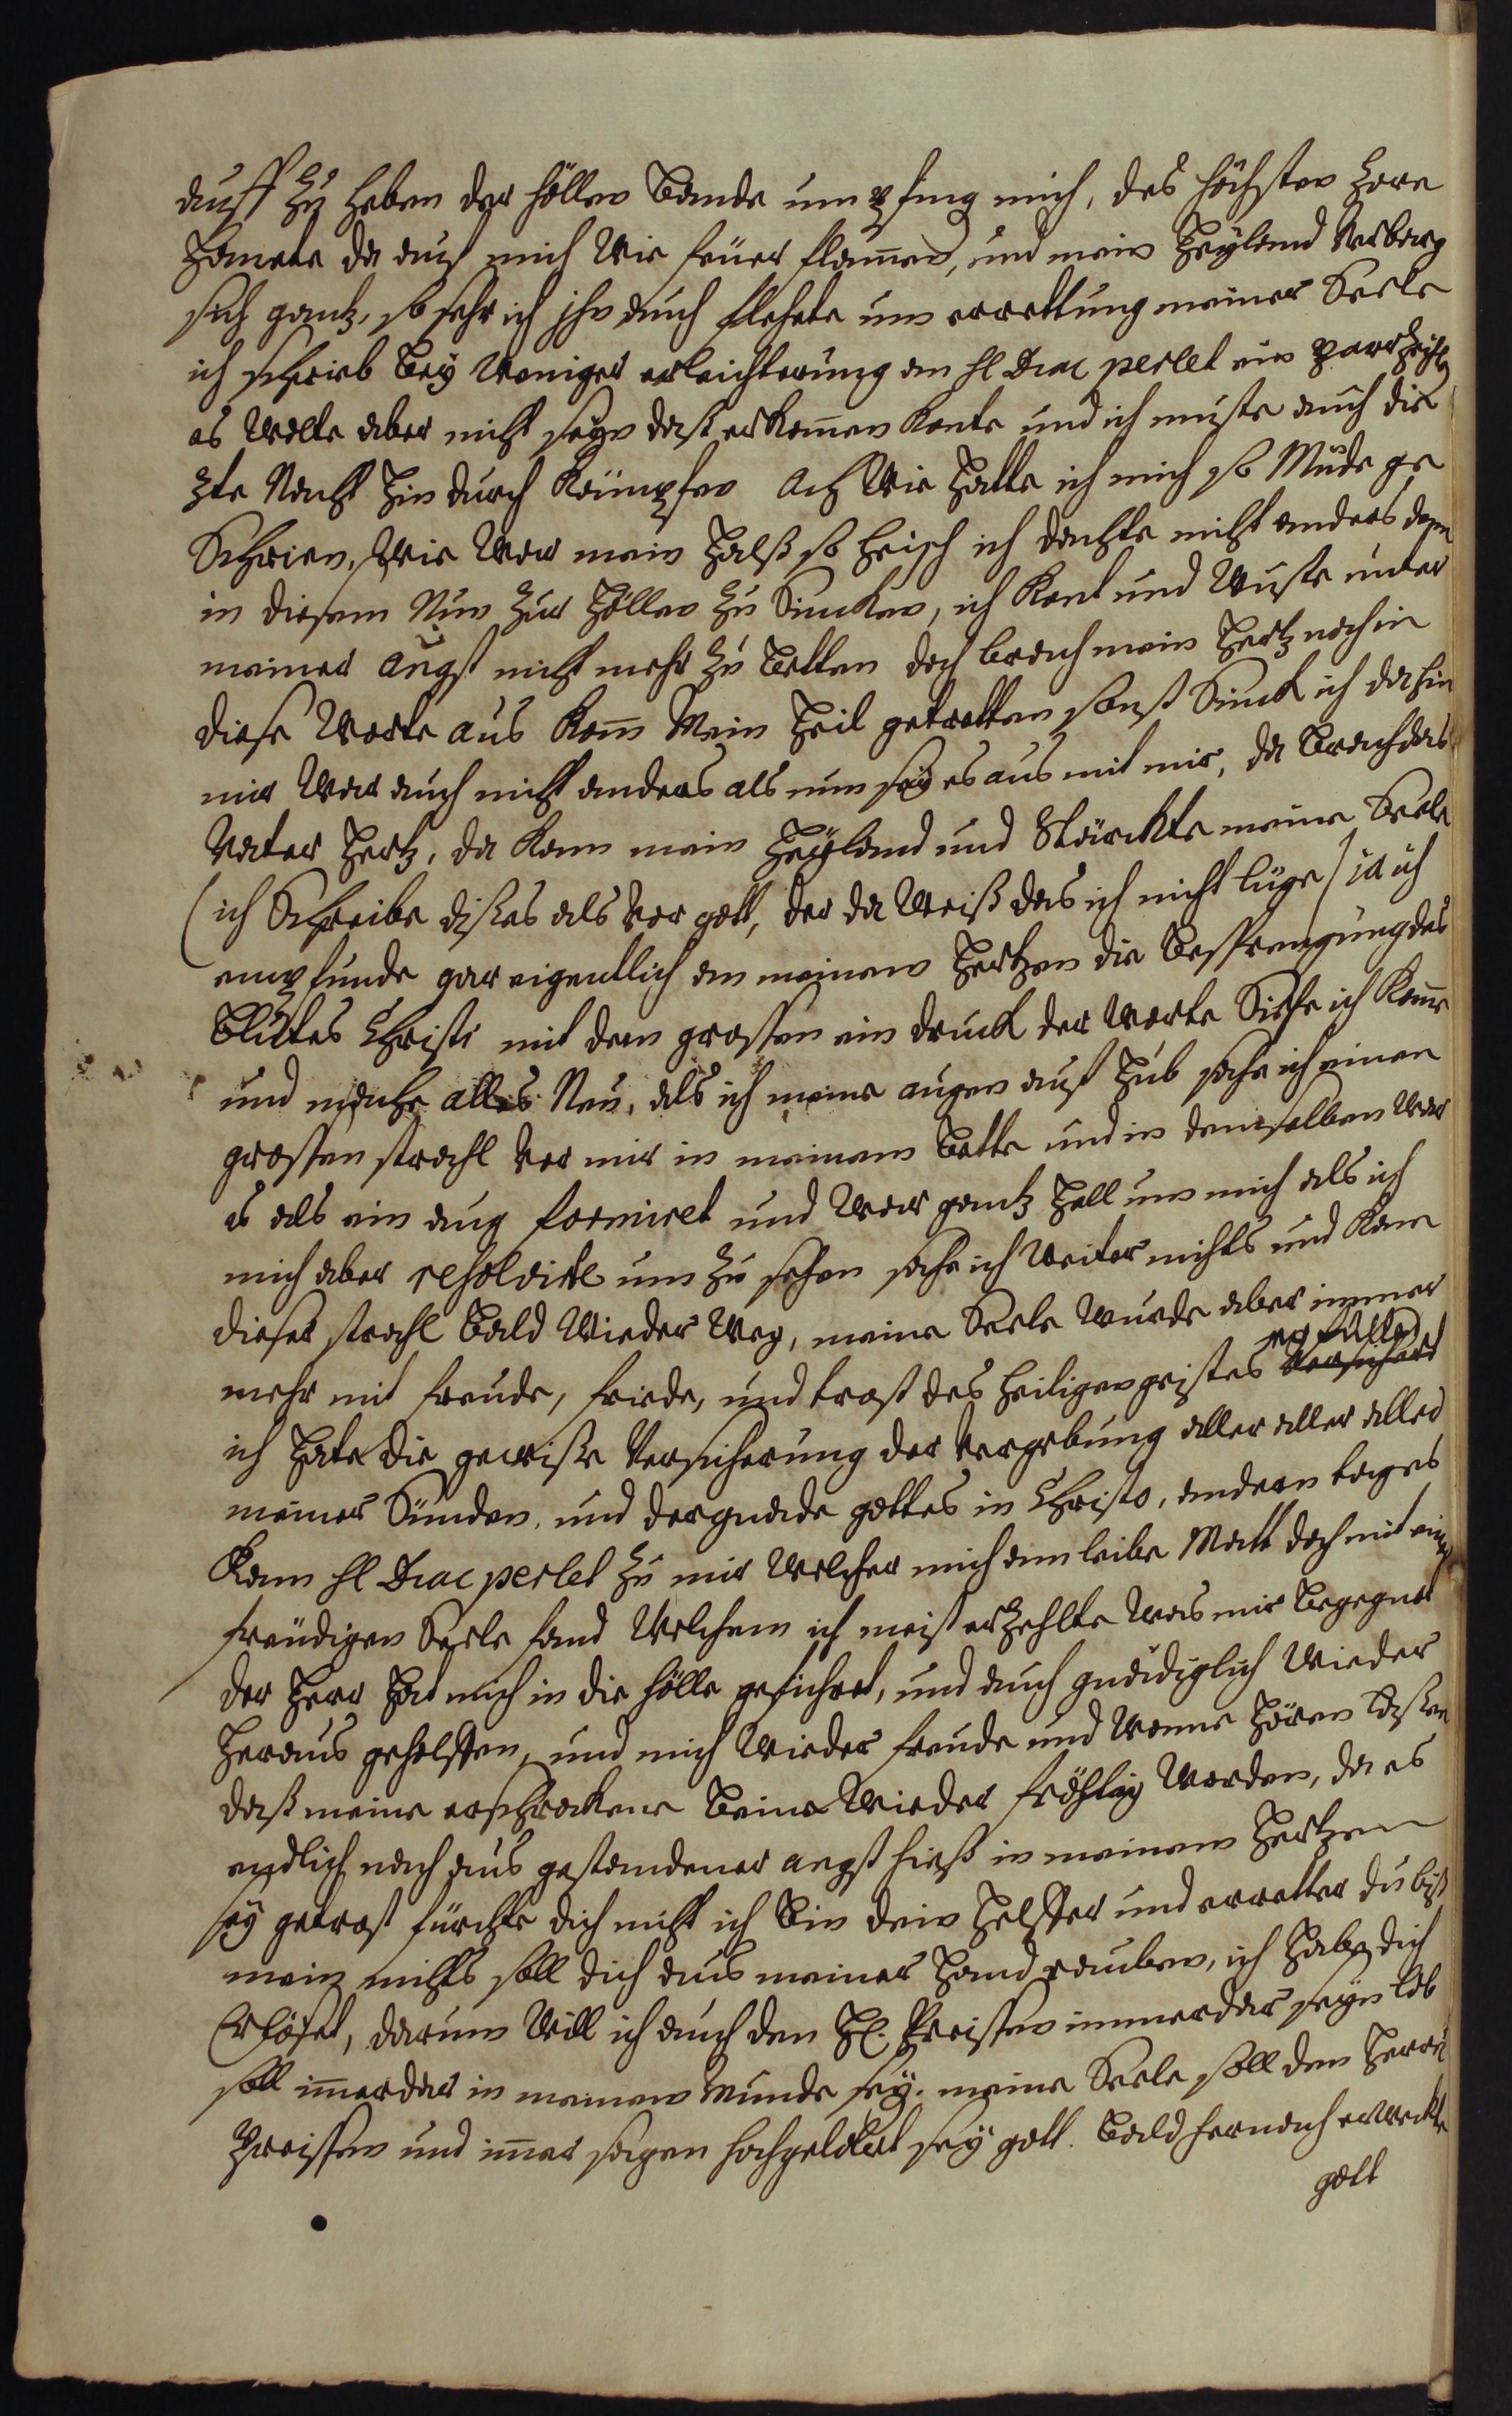 auff zu heben der höllen Bande umpfing mich, des höchsten Zorn
Hamete da auf mich Wie feuer flam̅en, und mein Heyland Verbarg
sich gantz, so sehr ich jhn auch flehete um errettung meiner Seele
ich schrieb bey Weniger erleichterung an hl Diac perlet ein paar Zeihlen
es Wolte aber nicht seyn daß er kom̅en konte und ich muste auch die
2te Nacht hin durch kämpfen Ach Wie hatte ich mich so Müde ge
Schrien, Wie War mein Halß so heisch ich dachte nicht anders dann
in diesem Nun zur Höllen zu Sincken, ich kont und Wuste unter
meiner angst nicht mehr zu betten doch brach mein Hertz noch in
diese Worte aus kom̅ Mein Heil getretten sonst Sinck ich dahin
mir War auch nicht anders als nun sey es aus mit mir, da brach das
Vater Hertz, da kam mein Heyland und Stärckte meine Seele
(ich Schreibe dißes als Vor gott, der da Weiß das ich nicht lüge) ja ich
empfunde gar eigentlich an meinem Hertzen die besprengung des
Blutes Christi mit dem grossen ein druck der Worte Siehe ich kom̅e
und mache alles Neu, als ich meine augen auf hub sahe ich einen
grossen strahl Vor mir in meinem Bette und in demselben War
es als ein aug formiret und War gantz Hell um mich als ich
mich aber um zu sehen sahe ich Weiter nichts und kam
dieser strahl bald Wieder Weg, meine Seele Wurde aber immer
mehr mit freude, friede, und trost des heiligen geistes Versichert erfüllet
ich Hate die gewiße Versicherung der Vergebung aller aller aller
meiner Sünden, und der gnade gottes in Christo, andern tages
kam hl Diac perlet zu mir Welcher mich am leibe Matt doch mit einer
freudigen Seele fand Welchem ich meist erzehlte Was mir begegnet
der Herr Hat mich in die hölle geführet, und auch gnädiglich Wieder
Heraus geholffen, und mich Wieder freude und Wonne Hören laßen
daß meine erschrockene beine Wieder fröhlig Worden, da es
endlich nach aus gestandener angst hieß in meinem Hertzen
sey getrost fürchte dich nicht ich bin dein Helffer und erretter du bist
mein nichts soll dich aus meiner Hand rauben, ich Habe dich
Erlöset, darum Will ich auch den H. Preissen immerdar seyn lob
soll im̅erdar in meinem Munde sey. meine Seele soll den Herrn
Preissen und im̅er sagen hochgelobet sey gott. bald hernach erweckte
gott